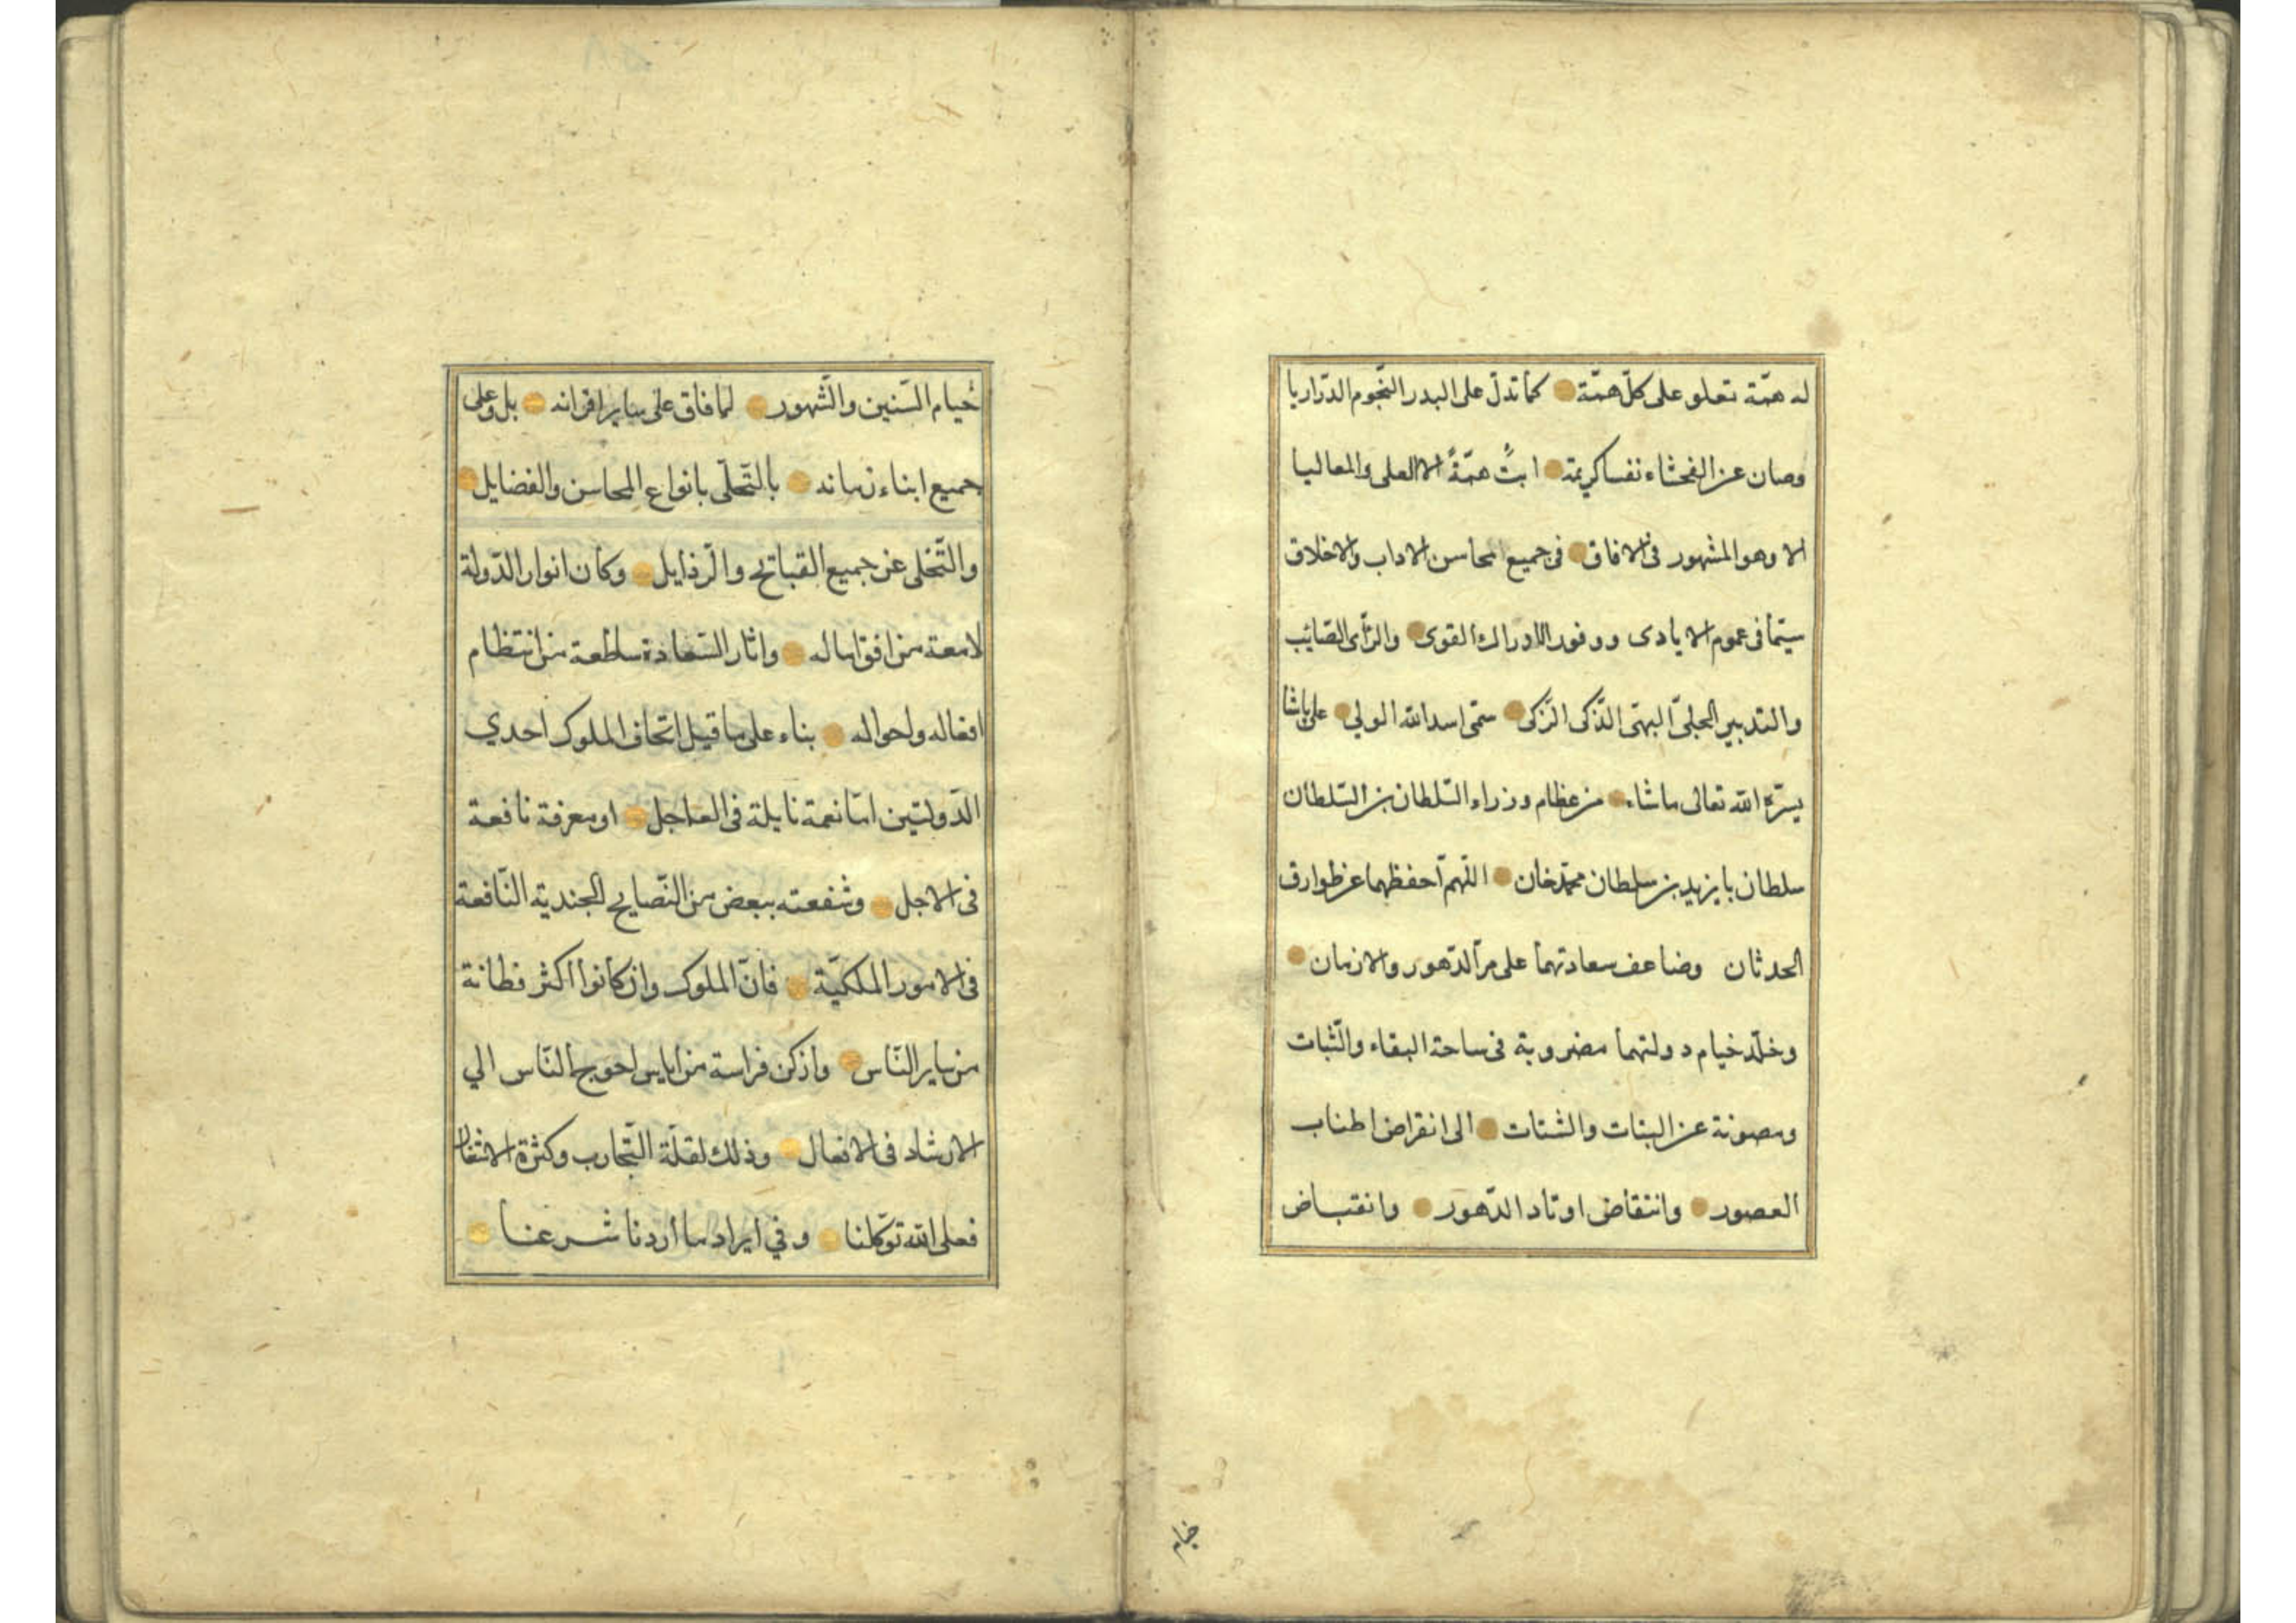 له همّة تعلو على كلّ همّة كما تدلّ على البدر النّجوم الدّراريا
وصان عن الفحشاء نفسا كريمة ابتْ همّةً الا العلى والمعاليا
الا وهو المشهور فى الافاق فى جميع محاسن الاداب والاخلاق
سيّما فى عموم الايادى ووفور الادراك القوى والرّأى الصّائب
والتدبير الجلىّ البهىّ الذّكى الزّكى سمّى اسد الله الولي على پاشا
يسّره الله تعالى ماشاء من عظام وزراء السّلطان بن السّلطان
سلطان بايزيد بن سلطان محمّد خان اللّهمّ احفظهما عن طوارق
الحدثان وضاعف سعادتهما على مرّ الدّهور والازمان
وخلّد خيام دولتهما مضروبة فى ساحة البقاء والثّبات
ومصونة عن البتات والشتات الى انقراض اطناب
العصور وانتقاض اوتاد الدّهور وانقباض
خيام
خيام السّنين والشّهور لما فاق على ساير اقرانه بل وعلى
جميع ابناء زمانه بالتّحلّى بانواع المحاسن والفضايل
والتّخلى عن جميع القبائح والرّذايل وكان انوار الدّولة
لامعة من افق اماله واثار السّعادة ساطعة من انتظام
افعاله واحواله بناء على ما قيل اتحاف الملوك احدي
الدّولتين امّا نعمة نايلة فى العاجل او معرفة نافعة
فى الاجل وشفعته ببعض من النّصايح الجندية النّافعة
فى الامور الملكيّة فانّ الملوك وان كانوا اكثر فطانة
من ساير النّاس وازكن فراسة من اياس احوج النّاس الي
الارشاد فى الافعال وذلك لقلّة التّجارب وكثرة الاشغال
فعلى الله توكّلنا وفي ايراد ما أردنا شرعنا